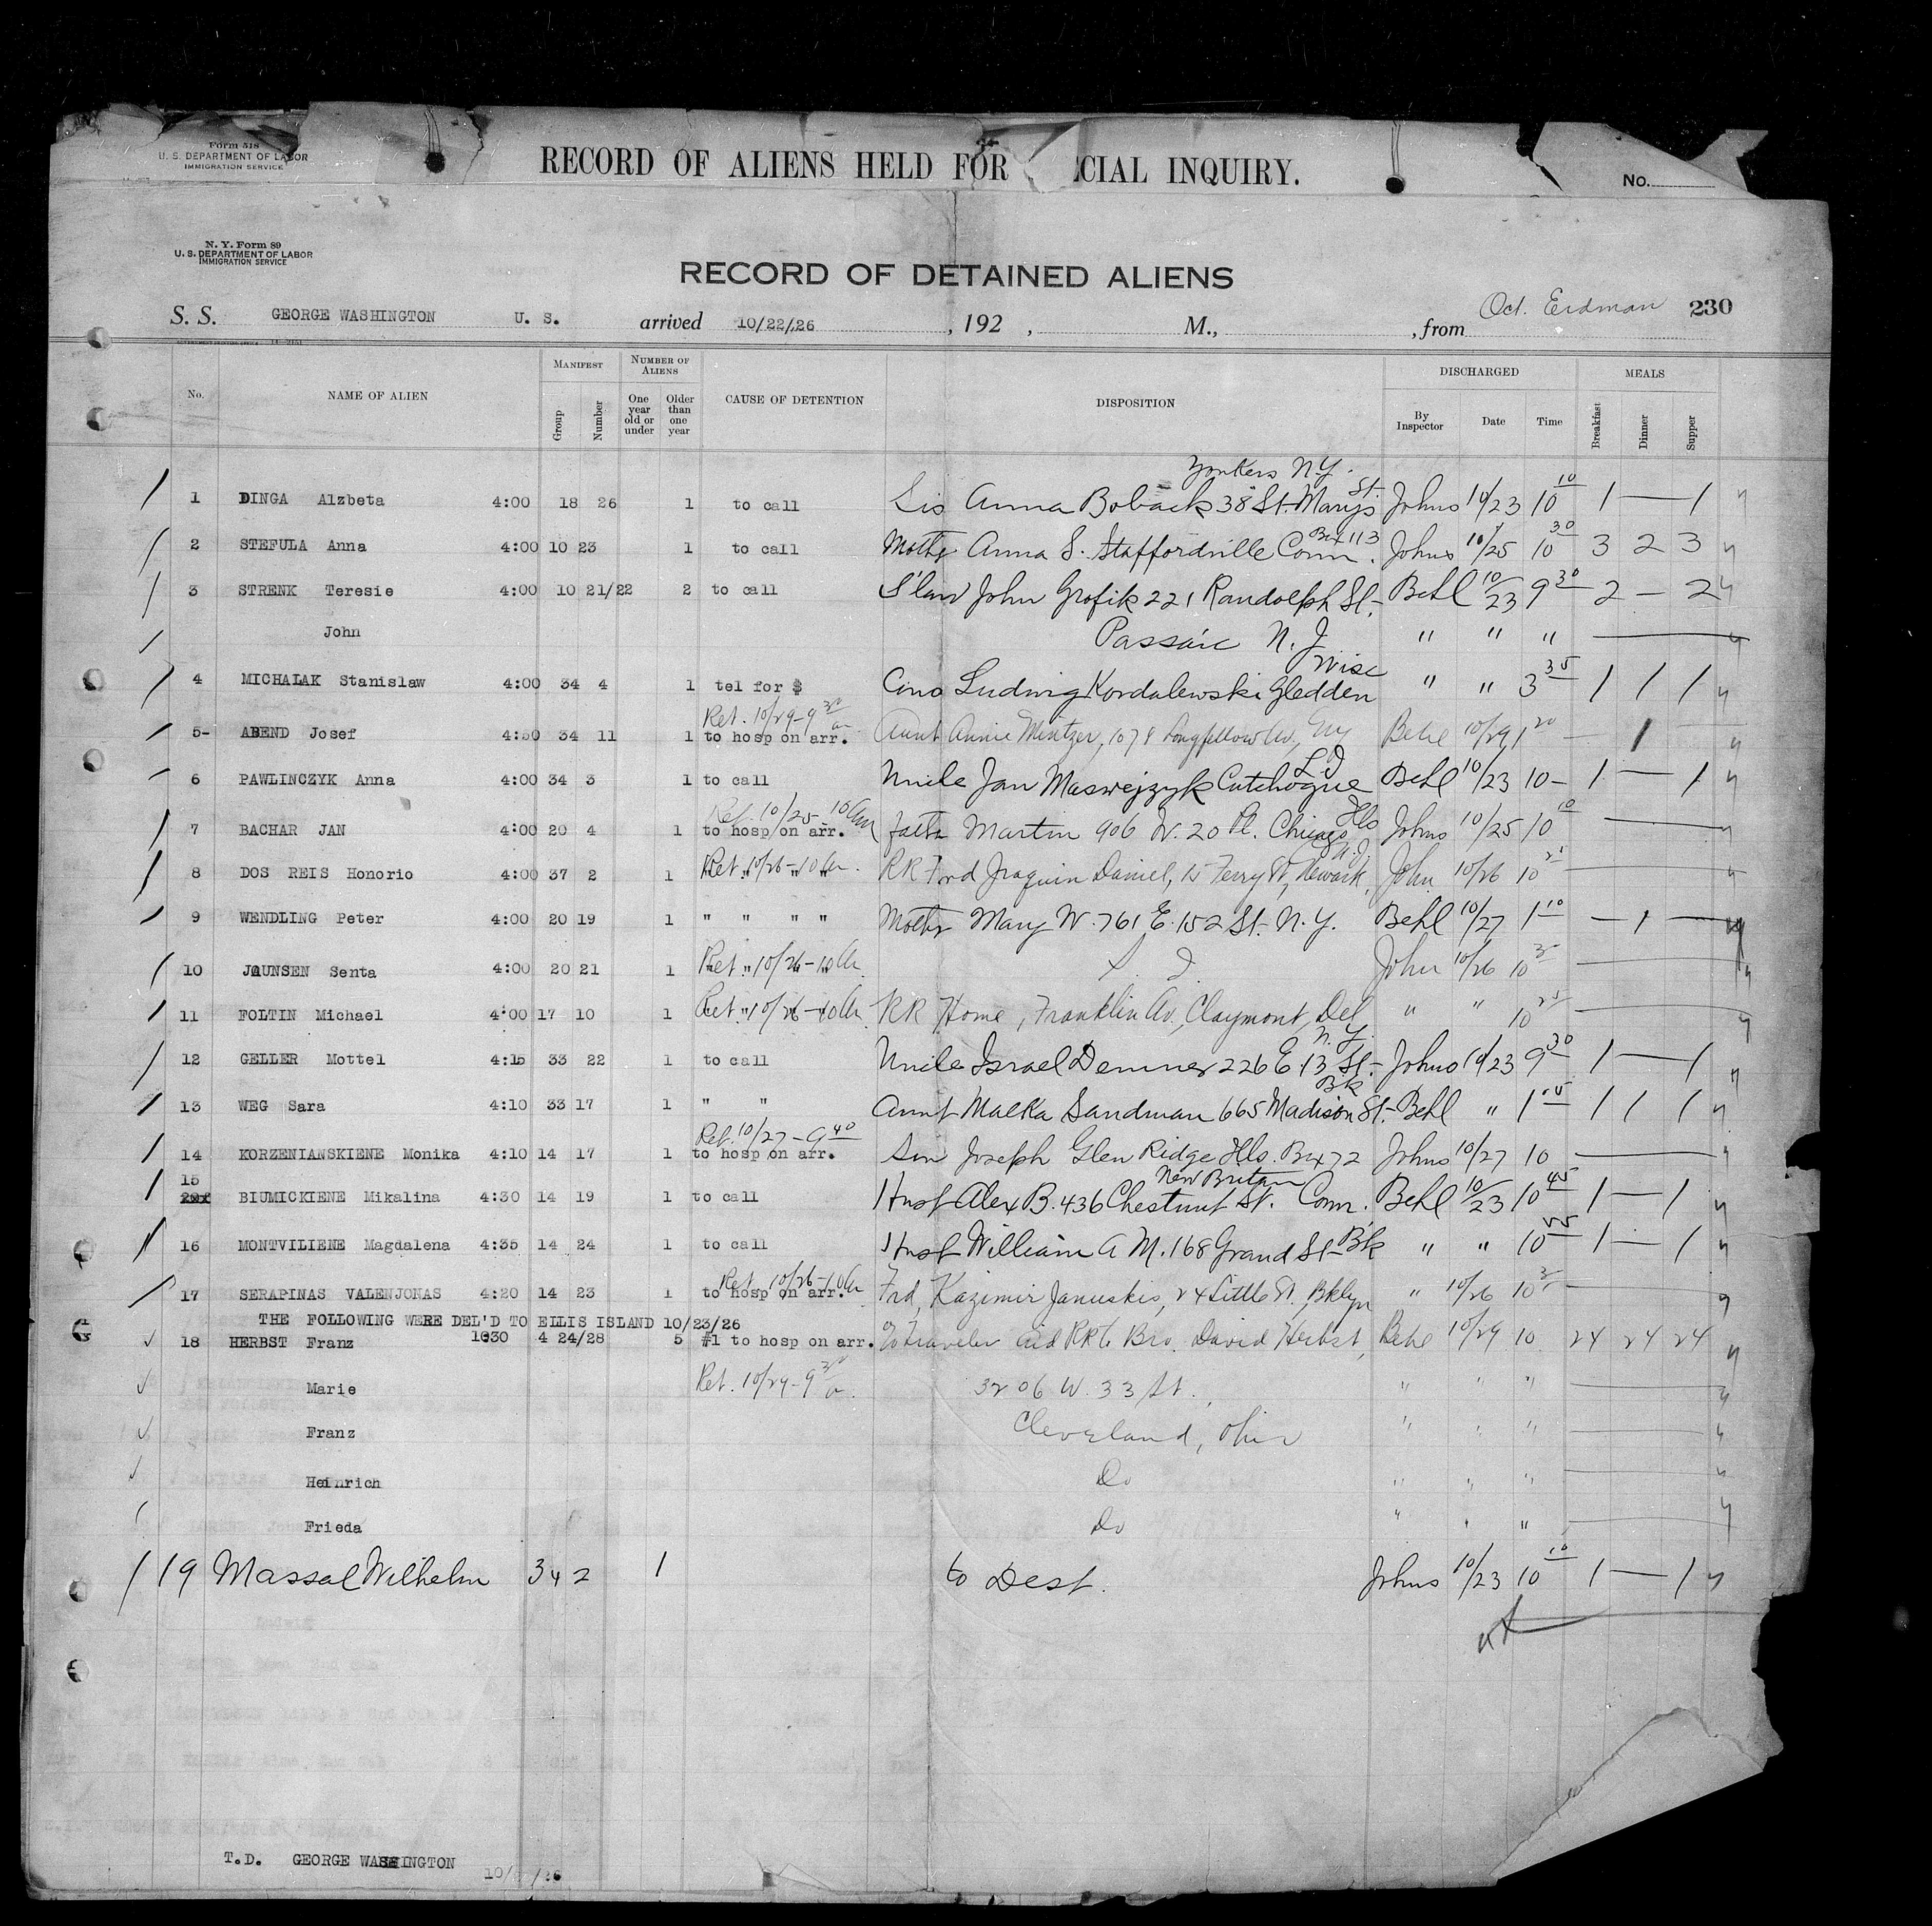 Form 518
U. S. DEPARTMENT OF LABOR
IMMIGRATION SERVICE
RECORD OF ALIENS HELD FOR CIAL INQUIRY.
No.
N. Y. Form 89
U. S. DEPARTMENT OF LABOR
IMMIGRATION SERVICE
RECORD OF DETAINED ALIENS
S. S. GEORGE WASHINGTON U. S. arrived 10/22/26 , 192 , M., , from Oct. Erdman 230
No. NAME OF ALIEN MANIFEST Group Number NUMBER OF ALIENS One year old or under Older than one year CAUSE OF DETENTION DISPOSITION DISCHARGED By Inspector Date Time MEALS Breakfast Dinner Supper
Yonkers N.Y.
1 DINGA Alzbeta 4:00 18 26 1 to call Sis Anna Boback 38 St. Marys St. Johns 10/23 10 10 1 — 1
2 STEFULA Anna 4:00 10 23 1 to call Mother Anna S. Staffordville Conn. Box 113 Johns 10/25 10 30 3 2 3
3 STRENK Teresie 4:00 10 21/22 2 to call S'law John Grofik 221 Randolph St. Behl 10/23 9 30 2 — 2
John Passaic N. J. " " "
Wisc
4 MICHALAK Stanislaw 4:00 34 4 1 tel for $ Ludwig Kordalewski Gledden " " 3 35 1 1 1
Ret. 10/29-9 30 a
5- ABEND Josef 4:50 34 11 1 to hosp on arr. Aunt Annie Mintzer, 1078 Longfellow Av, NY Behl 10/29 1 20 — 1 —
L I
6 PAWLINCZYK Anna 4:00 34 3 1 to call Uncle Jan Maswejzyk Cutchogue Behl 10/23 10 - 1 — 1
Ret. 10/25-10 am
7 BACHAR JAN 4:00 20 4 1 to hosp on arr. Fath Martin 906 W. 20 Pl. Chicago Ills Johns 10/25 10 10 —
N.J.
8 DOS REIS Honorio 4:00 37 2 1 Ret. 10/26-10 a. RR Frd Joaquin Daniel, 15 Ferry St, Newark, John 10/26 10 —
9 WENDLING Peter 4:00 20 19 1 " " " " Mother Mary W. 761 E. 152 St. N. Y. Behl 10/27 1 10 — 1 —
10 JAUNSEN Senta 4:00 20 21 1 Ret. 10/26-10 a. John 10/26 10 —
11 FOLTIN Michael 4:00 17 10 1 Ret. 10/26-10 a. RR Home, Franklin Av., Claymont, Del " " 10 25 —
N. Y.
12 GELLER Mottel 4:15 33 22 1 to call Uncle Israel Demner 226 E 13 St. Johns 10/23 9 30 1 — 1
Bk
13 WEG Sara 4:10 33 17 1 " " Aunt Malka Sandman 665 Madison St. Behl " 1 1 1 1
Ret. 10/27-9 40
14 KORZENIANSKIENE Monika 4:10 14 17 1 to hosp on arr. Son Joseph Glen Ridge Ills. Box 72 Johns 10/27 10 —
New Britain
15 BIUMICKIENE Mikalina 4:30 14 19 1 to call Husb Alex B. 436 Chestnut St. Conn. Behl 10/23 10 45 1 — 1
16 MONTVILIENE Magdalena 4:35 14 24 1 to call Husb William A M. 168 Grand St Bk " " 10 55 1 — 1
Ret. 10/26-10 a
17 SERAPINAS VALENJONAS 4:20 14 23 1 to hosp on arr. Frd, Kazimir Januskis, 24 Little St. Bklyn " 10/26 10 —
THE FOLLOWING WERE DEL'D TO ELLIS ISLAND 10/23/26
18 HERBST Franz 1030 4 24/28 5 #1 to hosp on arr. Traveler aid RR to Bro. David Herbst, Behl 10/29 10 24 24 24
Marie Ret. 10/29-9 30 a. 3206 W. 33 St. " " "
Franz Cleveland, Ohio " " "
Heinrich Do " " "
Frieda Do " " "
19 Massal Wilhelm 34 2 1 to Dest. Johns 10/23 10 10 1 — 1
T.D. GEORGE WASHINGTON